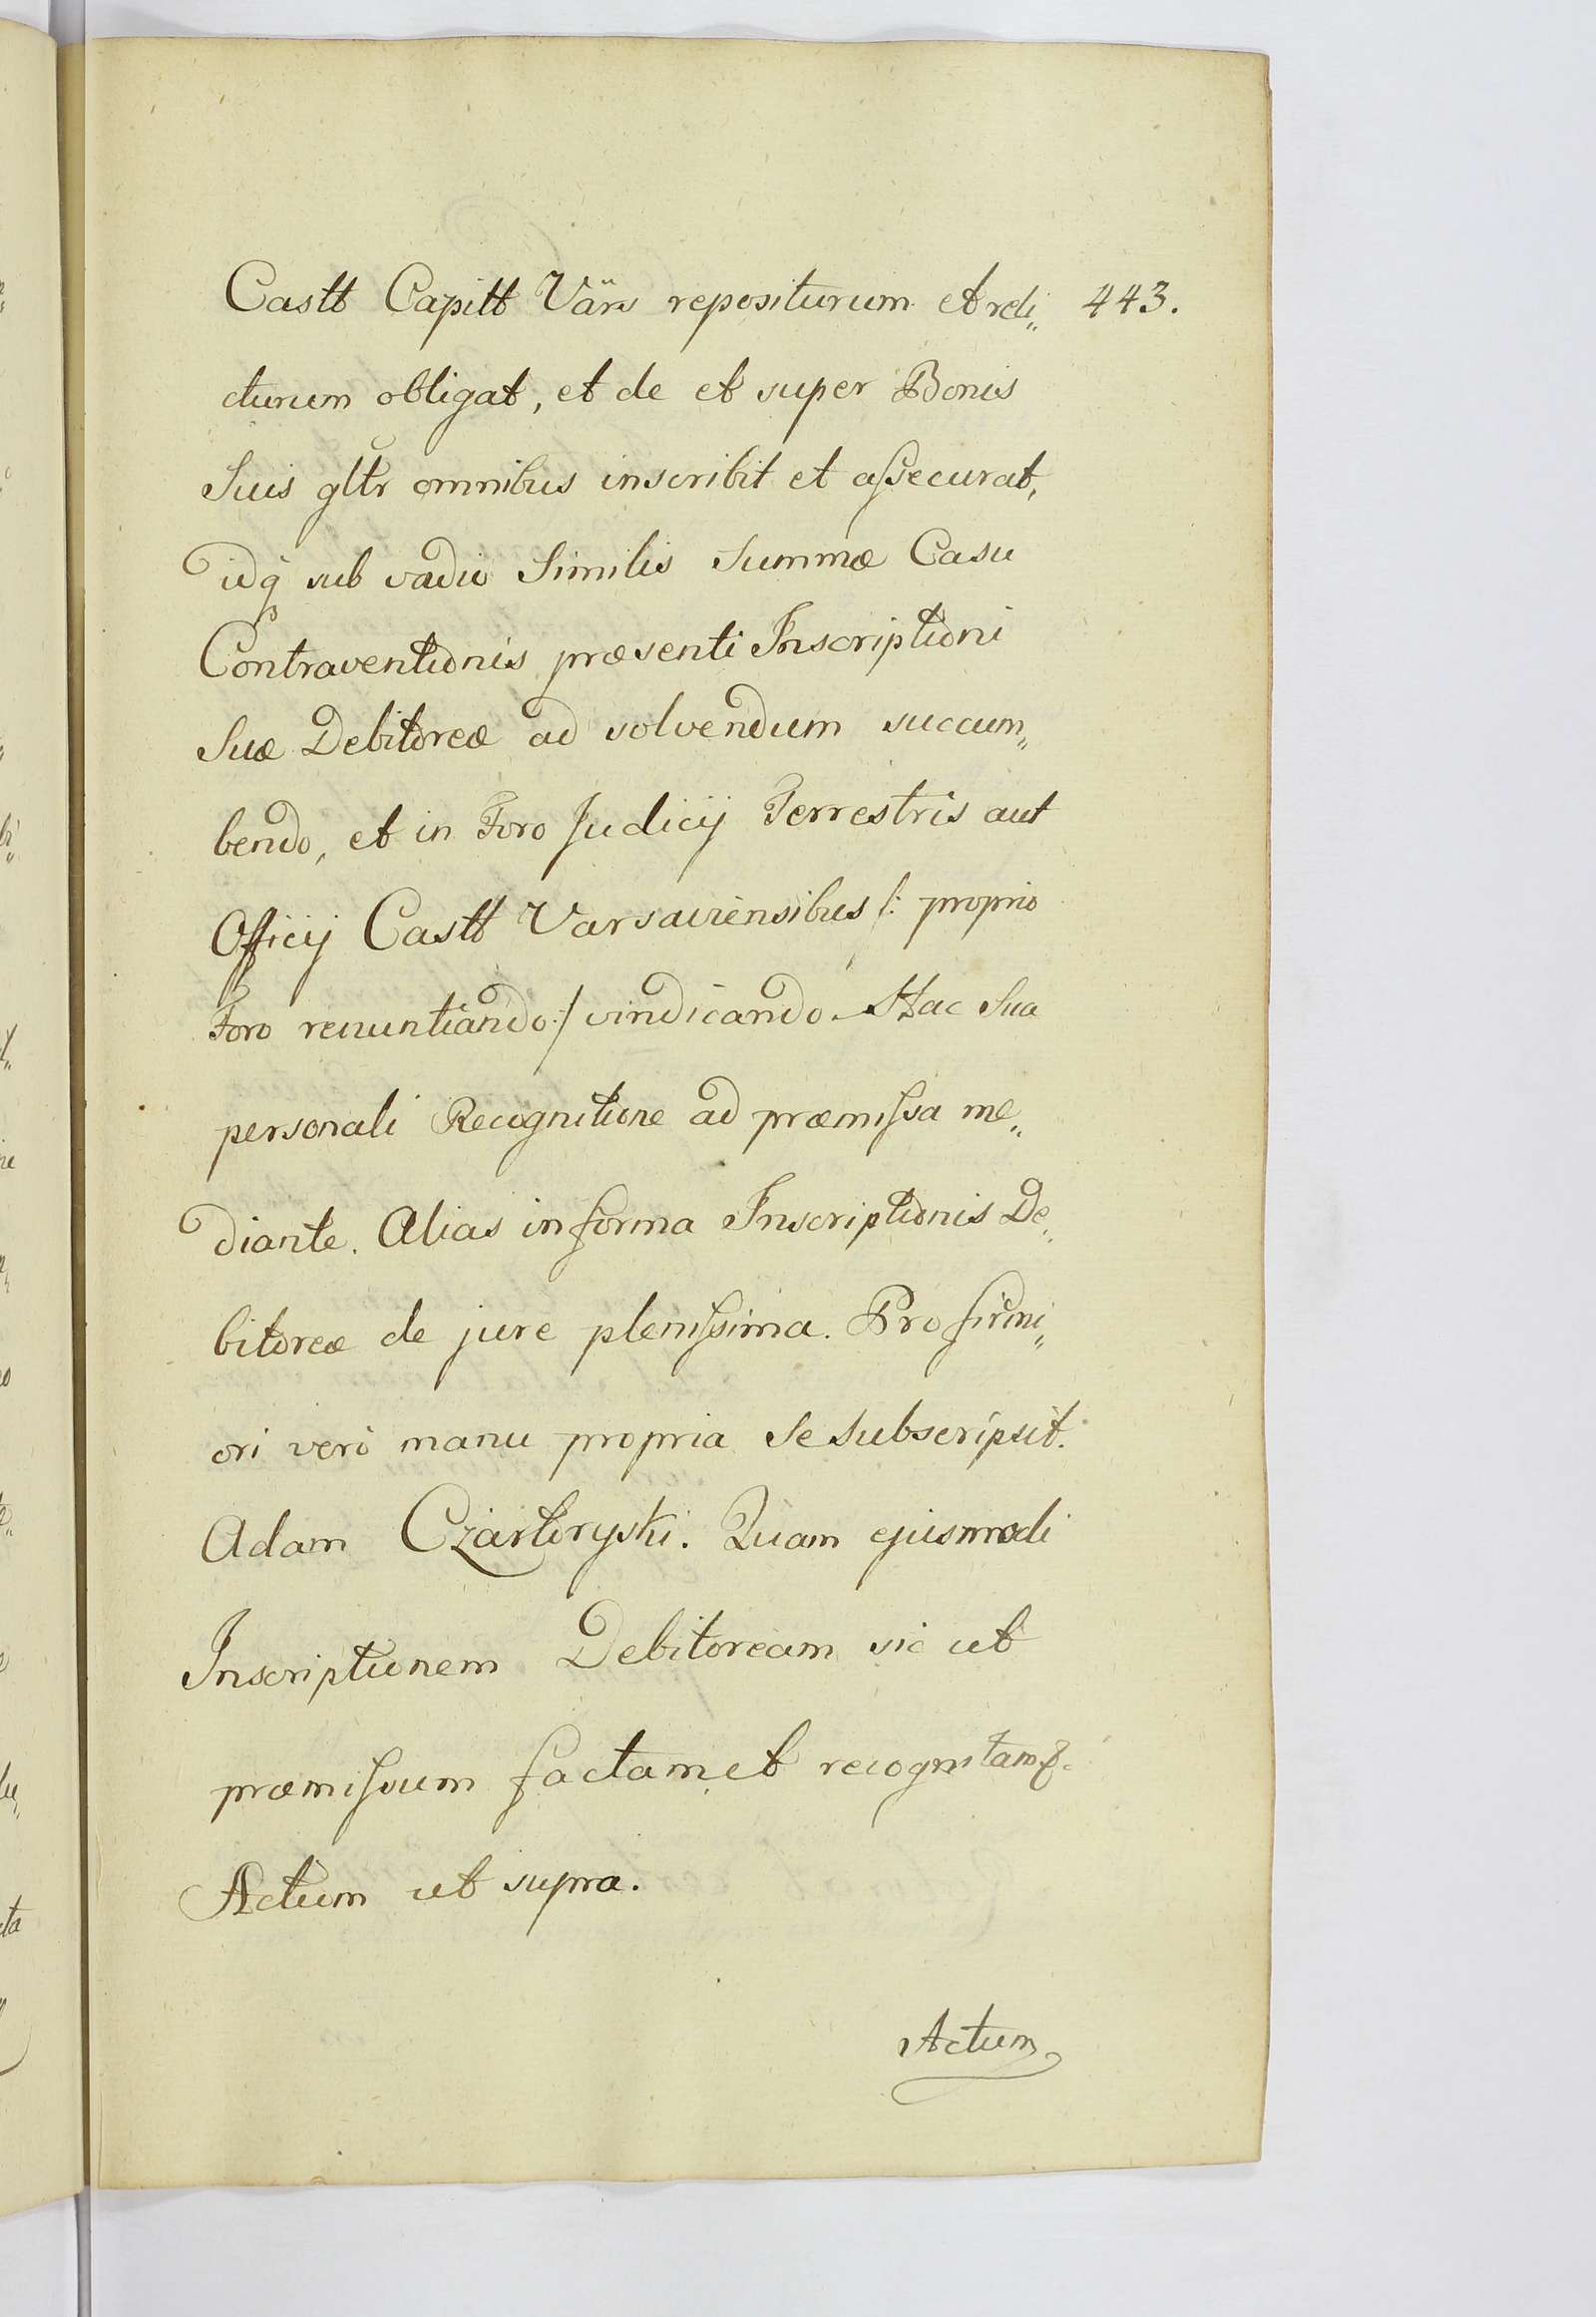 Castt Capitt Värs repositurum et redi„ 443.
turum obligat, et de et super Bonis
Suis gltr omnibus inscribit et assecurat,
idq sub vadio Similis Summæ Casu
Contraventionis præsenti Inscriptioni
Suæ Debitoreæ ad solvendum succum„
bendo, et in Foro Judicij Terrestris aut
Officij Castt Varsaviensibus /: proprio
Foro renuntiando :/ vindicando. Hac Sua
personali Recognitione ad præmissa me„
diante. Alias in forma Inscriptionis De„
bitoreæ de jure plenissima. Pro firmi„
ori verò manu propria Se Subscripsit.
Adam Czartoryski. Quam ejusmodi
Inscriptionem Debitoream sic ut
præmissum factam et recognitam &.
Actum ut supra.
Actum